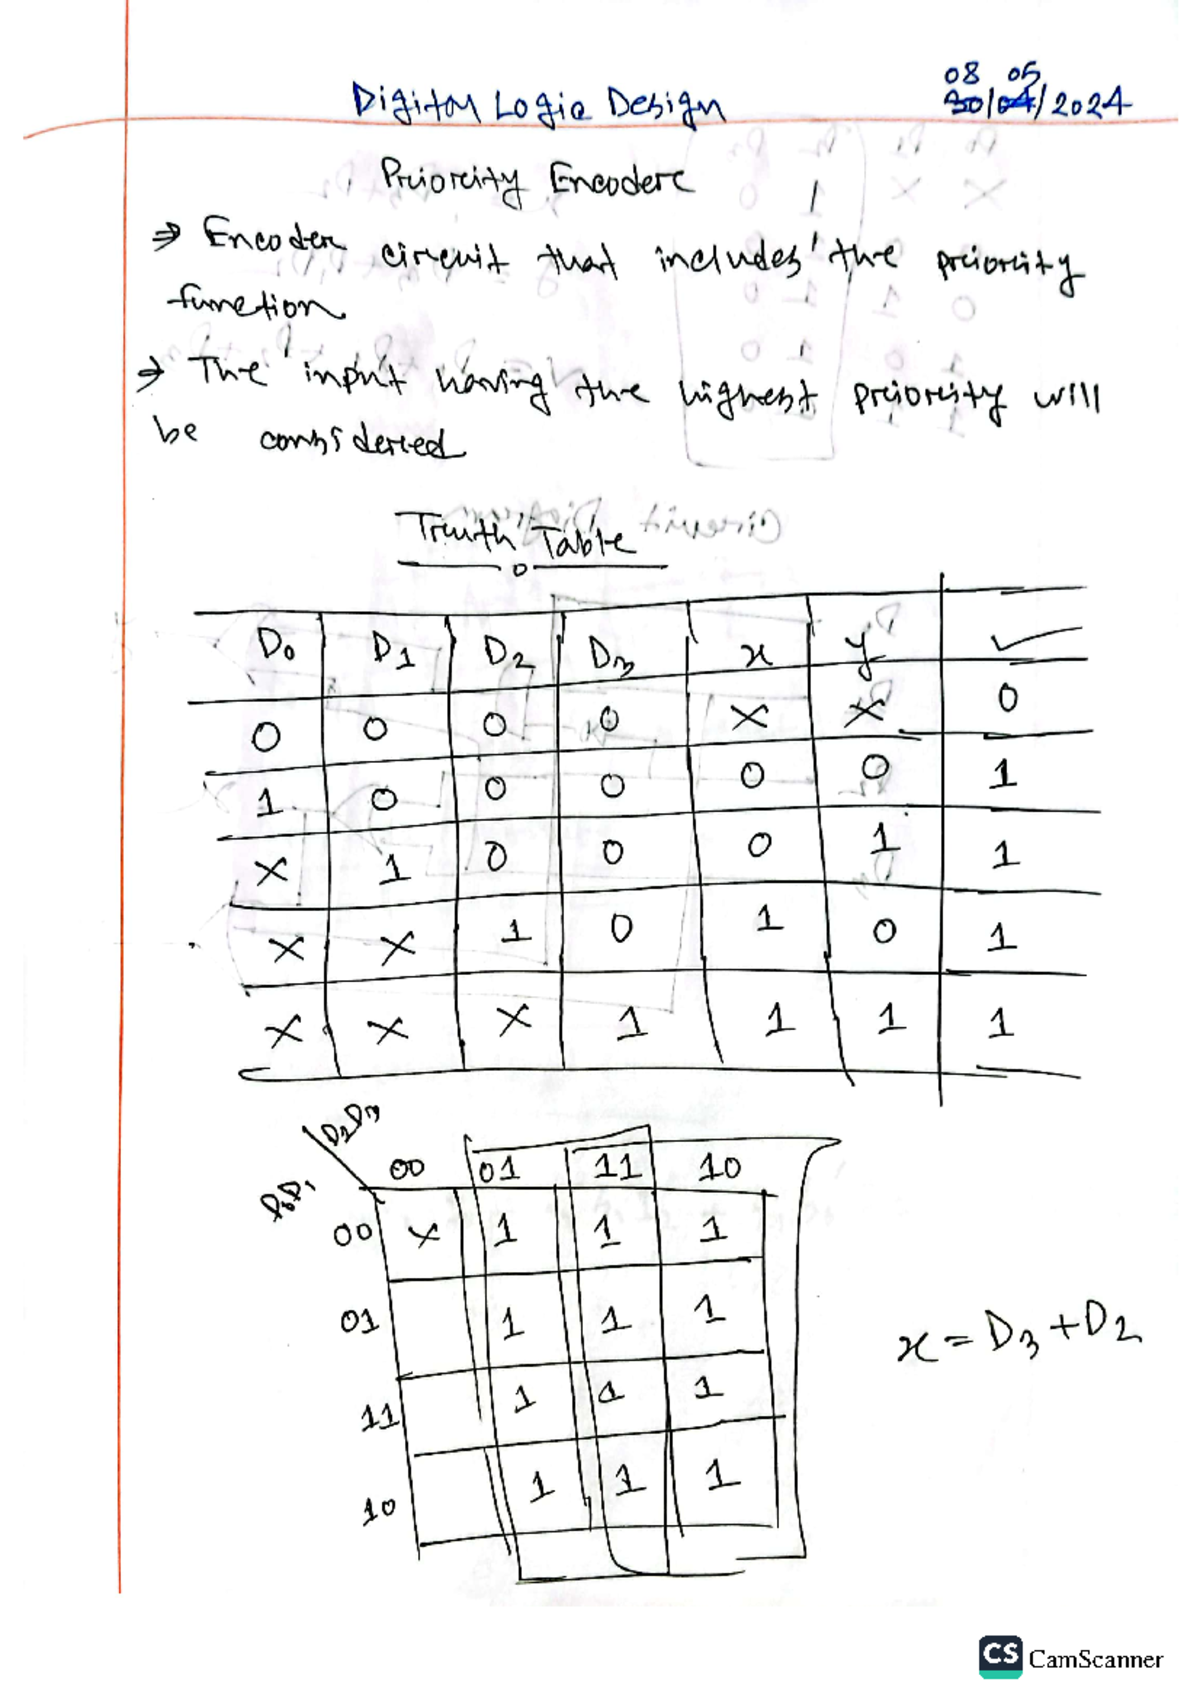 Digital Logic Design
08 05
30/04/2024
Priority Encoder
⇒ Encoder circuit that includes the priority
function
→ The input having the highest priority will
be considered
Truth Table
D₀ D₁ D₂ D₃ x y ✓
0 0 0 0 X X 0
1 0 0 0 0 0 1
X 1 0 0 0 1 1
X X 1 0 1 0 1
X X X 1 1 1 1
D₂D₃
00 01 11 10
D₀D₁
00 X 1 1 1
01 1 1 1
x = D₃ + D₂
11 1 1 1
10 1 1 1
CS CamScanner